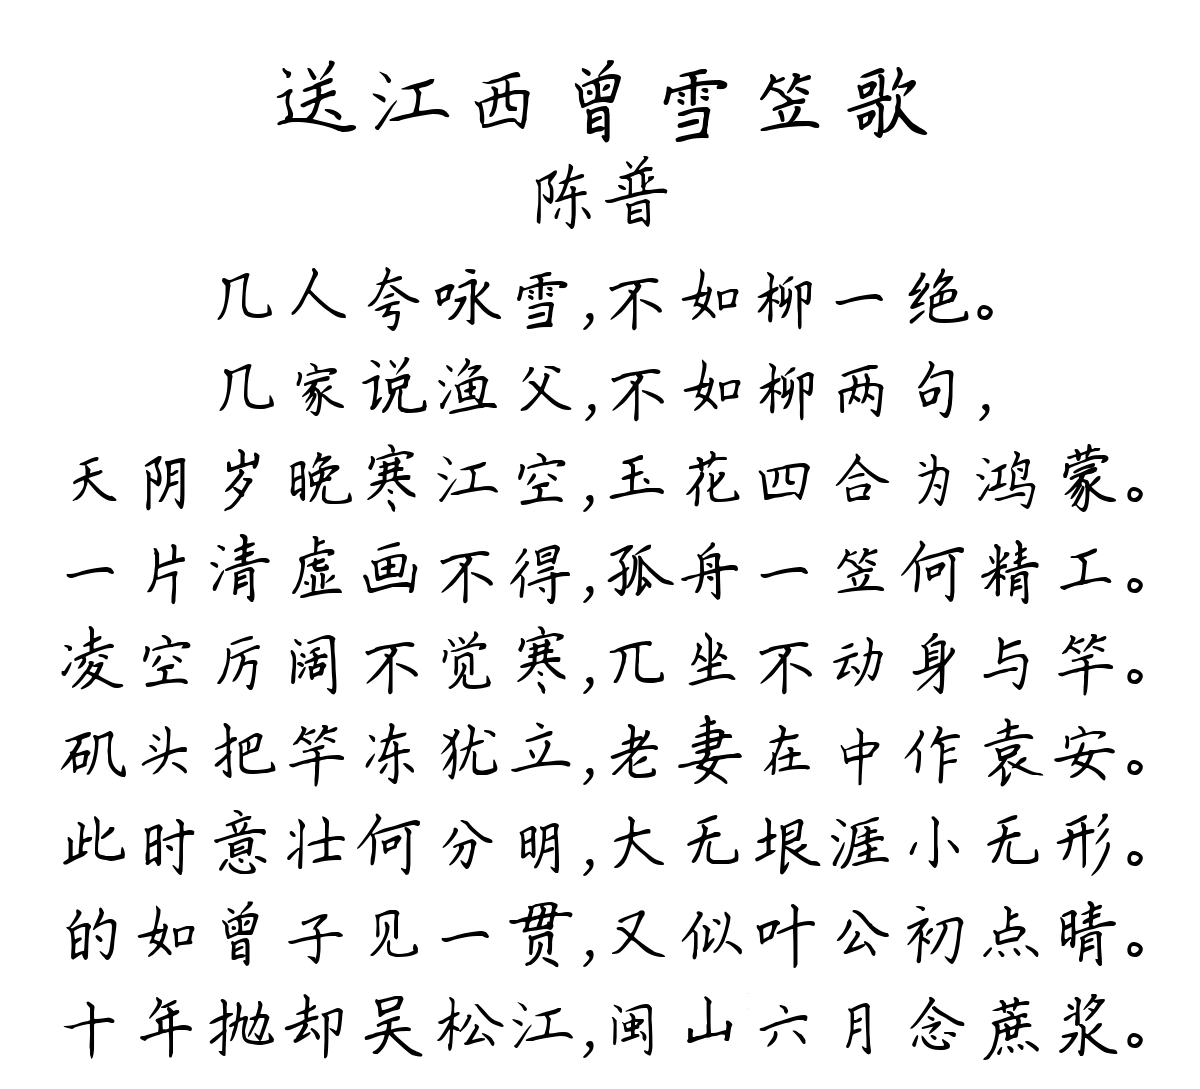 送江西曾雪笠歌
陈普
几人夸咏雪,不如柳一绝。
几家说渔父,不如柳两句,
天阴岁晚寒江空,玉花四合为鸿蒙。
一片清虚画不得,孤舟一笠何精工。
凌空厉阔不觉寒,兀坐不动身与竿。
矶头把竿冻犹立,老妻在中作袁安。
此时意壮何分明,大无垠涯小无形。
的如曾子见一贯,又似叶公初点晴。
十年抛却吴松江,闽山六月念蔗浆。